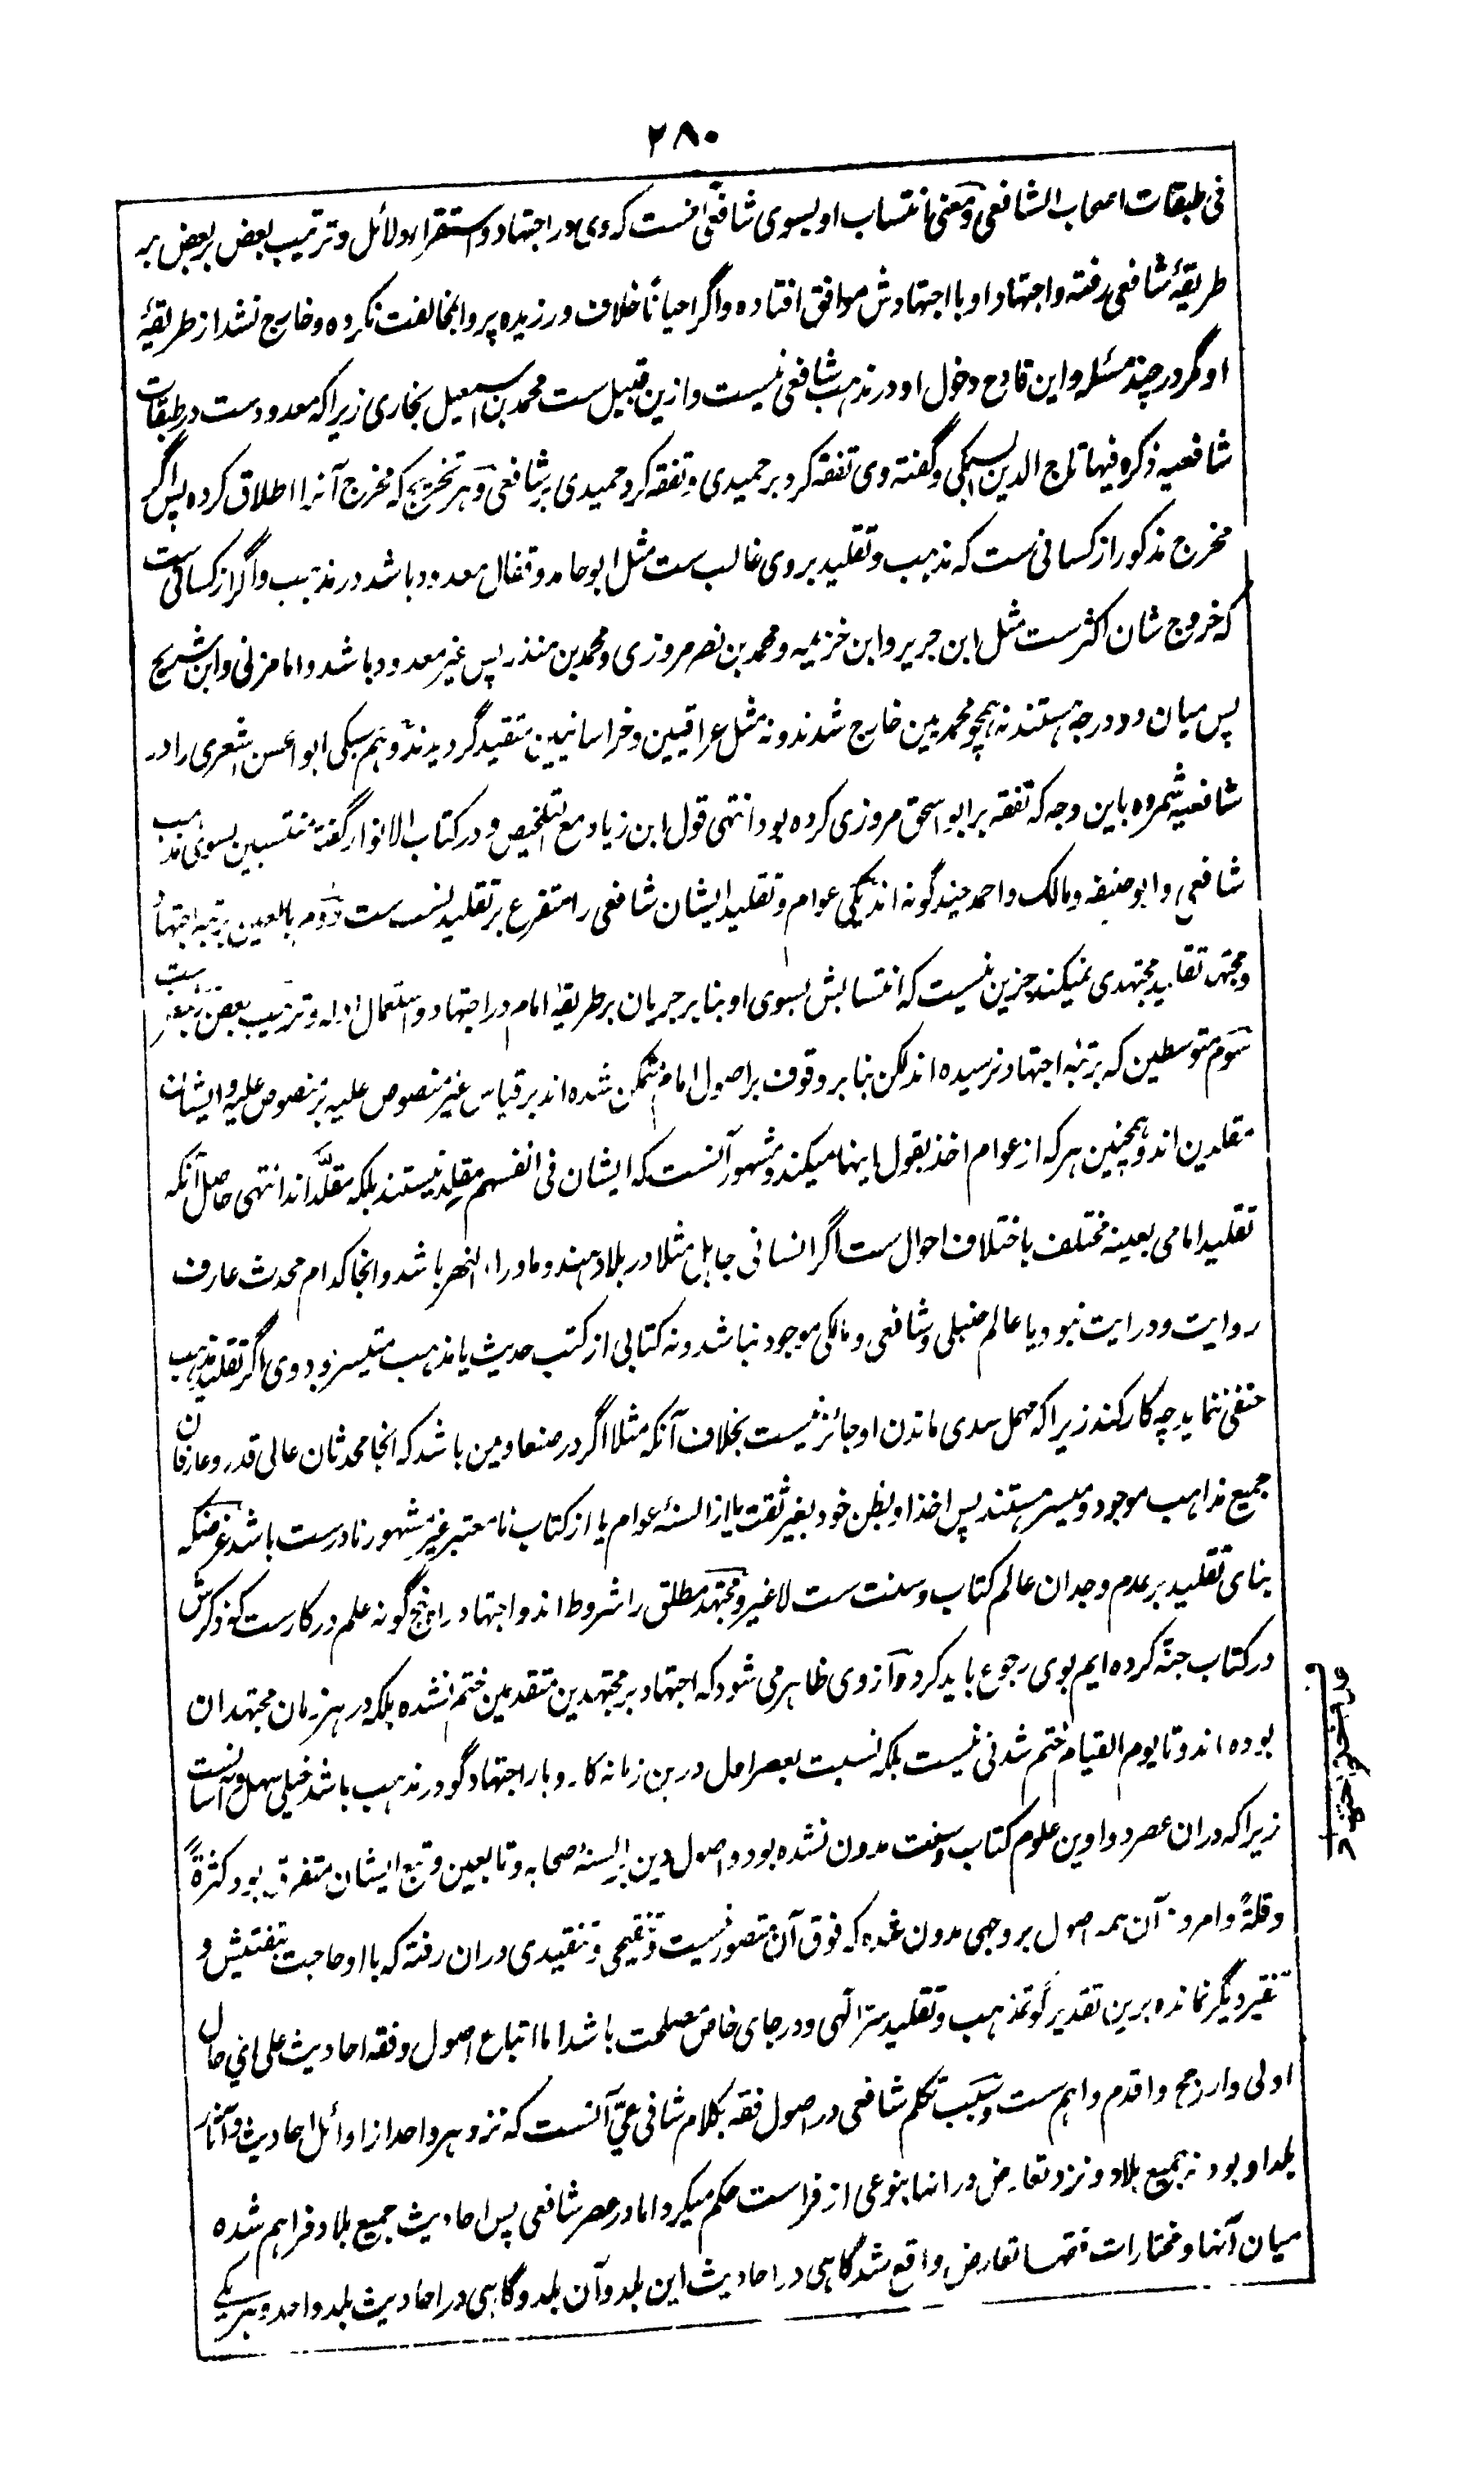 ۲۸۰
فی طبقات اصحاب الشافعی و معنی انتساب او بسوی شافعی آنست که وی در اجتهاد و استقراء دلائل و ترتیب بعض بر بعض بر
طریقۂ شافعی رفته و اجتهاد او با اجتهادش موافق افتاده و اگر احیاناً خلاف ورزیده پروا بمخالفت نکرده و خارج نشد از طریقۂ
او مگر در چند مسئله و این قادح دخول او در مذهب شافعی نیست و ازین قبیل ست محمد بن اسمعیل بخاری زیرا که معدودست در طبقات
شافعیه ذکره فیها تاج الدین السبکی و گفته وی تفقه کرد بر حمیدی و تفقه کرد حمیدی بر شافعی و هر تخریج که مخرج آنرا اطلاق کرده پس اگر
مخرج مذکور از کسانی ست که مذهب و تقلید بروی غالب ست مثل ابو حامد و قفال معدود باشد در مذهب و اگر از کسانی ست
که خروج شان اکثر ست مثل ابن جریر و ابن خزیمه و محمد بن نصر مروزی و محمد بن منذر پس غیر معدود باشد و اما مزنی و ابن شریح
پس میان دو درجه هستند نه همچو محمدین خارج شدند و نه مثل عراقیین و خراسانیین متقید گردیدند و هم سبکی ابو الحسن اشعری را در
شافعیه شمرده باین وجه که تفقه بر ابو اسحق مروزی کرده بود انتهی قول ابن زیاد مع التلخیص و در کتاب الانوار گفته منتسبین بسوی مذهب
شافعی و ابو حنیفه و مالک و احمد چند گونه اند یکی عوام و تقلید ایشان شافعی را متفرع بر تقلید منتسب ست دوم بالغین برتبه اجتهاد
و مجتهد تقلید مجتهدی نمیکند جزین نیست که انتسابش بسوی او بنا بر جریان بر طریقۂ امام در اجتهاد و استعمال ادله و ترتیب بعض بر بعض ست
سوم متوسطین که برتبه اجتهاد نرسیده اند لکن بنا بر وقوف بر اصول امام متمکن شده اند بر قیاس غیر منصوص علیه بر منصوص علیه و ایشان
مقلدین اند و همچنین هر که از عوام اخذ بقول اینها میکند و مشهور آنست که ایشان فی انفسهم مقلِّد نیستند بلکه مقلَّد اند انتهی حاصل آنکه
تقلید امامی بعینه مختلف باختلاف احوال ست اگر انسانی جاهل مثلا در بلاد هند و ماوراء النهر باشد و انجا کدام محدث عارف
روایت و درایت نبود یا عالم حنبلی و شافعی و مالکی موجود نباشد و نه کتابی از کتب حدیث یا مذهب متیسر بود وی اگر تقلید مذهب
حنفی ننماید چه کار کند زیرا که مهمل سدی ماندن او جائز نیست بخلاف آنکه مثلا اگر در صنعا و یمن باشد که انجا محدثان عالی قدر و عارفان
جمیع مذاهب موجود و میسر هستند پس اخذ او بظن خود بغیر ثقت یا از السنۂ عوام یا از کتاب نامعتبر غیر مشهور نادرست باشد غرضکه
بنای تقلید بر عدم وجدان عالم کتاب و سنت ست لاغیر و مجتهد مطلق را شروط اند و اجتهاد را پنج گونه علم در کارست که ذکرش
در کتاب جنّه کرده ایم بوی رجوع باید کرد و از وی ظاهر می شود که اجتهاد بر مجتهدین متقدمین ختم نشده بلکه در هر زمان مجتهدان
بوده اند و تا یوم القیام ختم شدنی نیست بلکه نسبت بعصر اول درین زمانه کار و بار اجتهاد گو در مذهب باشد خیلی سهل و آسانست
زیرا که دران عصر دواوین علوم کتاب و سنت مدون نشده بود و اصول دین بالسنۂ صحابه و تابعین و تبع ایشان متفرق بود کثرةً
و قلةً و امروز آن همه اصول بر وجهی مدون شده که فوق آن متصور نیست و تنقیحی و تنقیدی دران رفته که با او حاجت بتفتیش و
تنقیر دیگر نمانده برین تقدیر گو تمذهب و تقلید سرّ الٓهی و در جای خاص مصلحت باشد اما اتباع اصول و فقه احادیث علی ای حال
اولی و ارجح و اقدم و اهم ست و سبب تکلم شافعی در اصول فقه بکلام شافی عیّ آنست که نزد هر واحد از اوائل احادیث و آثار
بلد او بود نه جمیع بلاد و نزد تعارض در انها بنوعی از فراست حکم میکرد اما در عصر شافعی پس احادیث جمیع بلاد فراهم شده
میان آنها و مختارات فقها تعارض واقع شد گاهی در احادیث این بلد و آن بلد و گاهی در احادیث بلد واحد و هر یکی